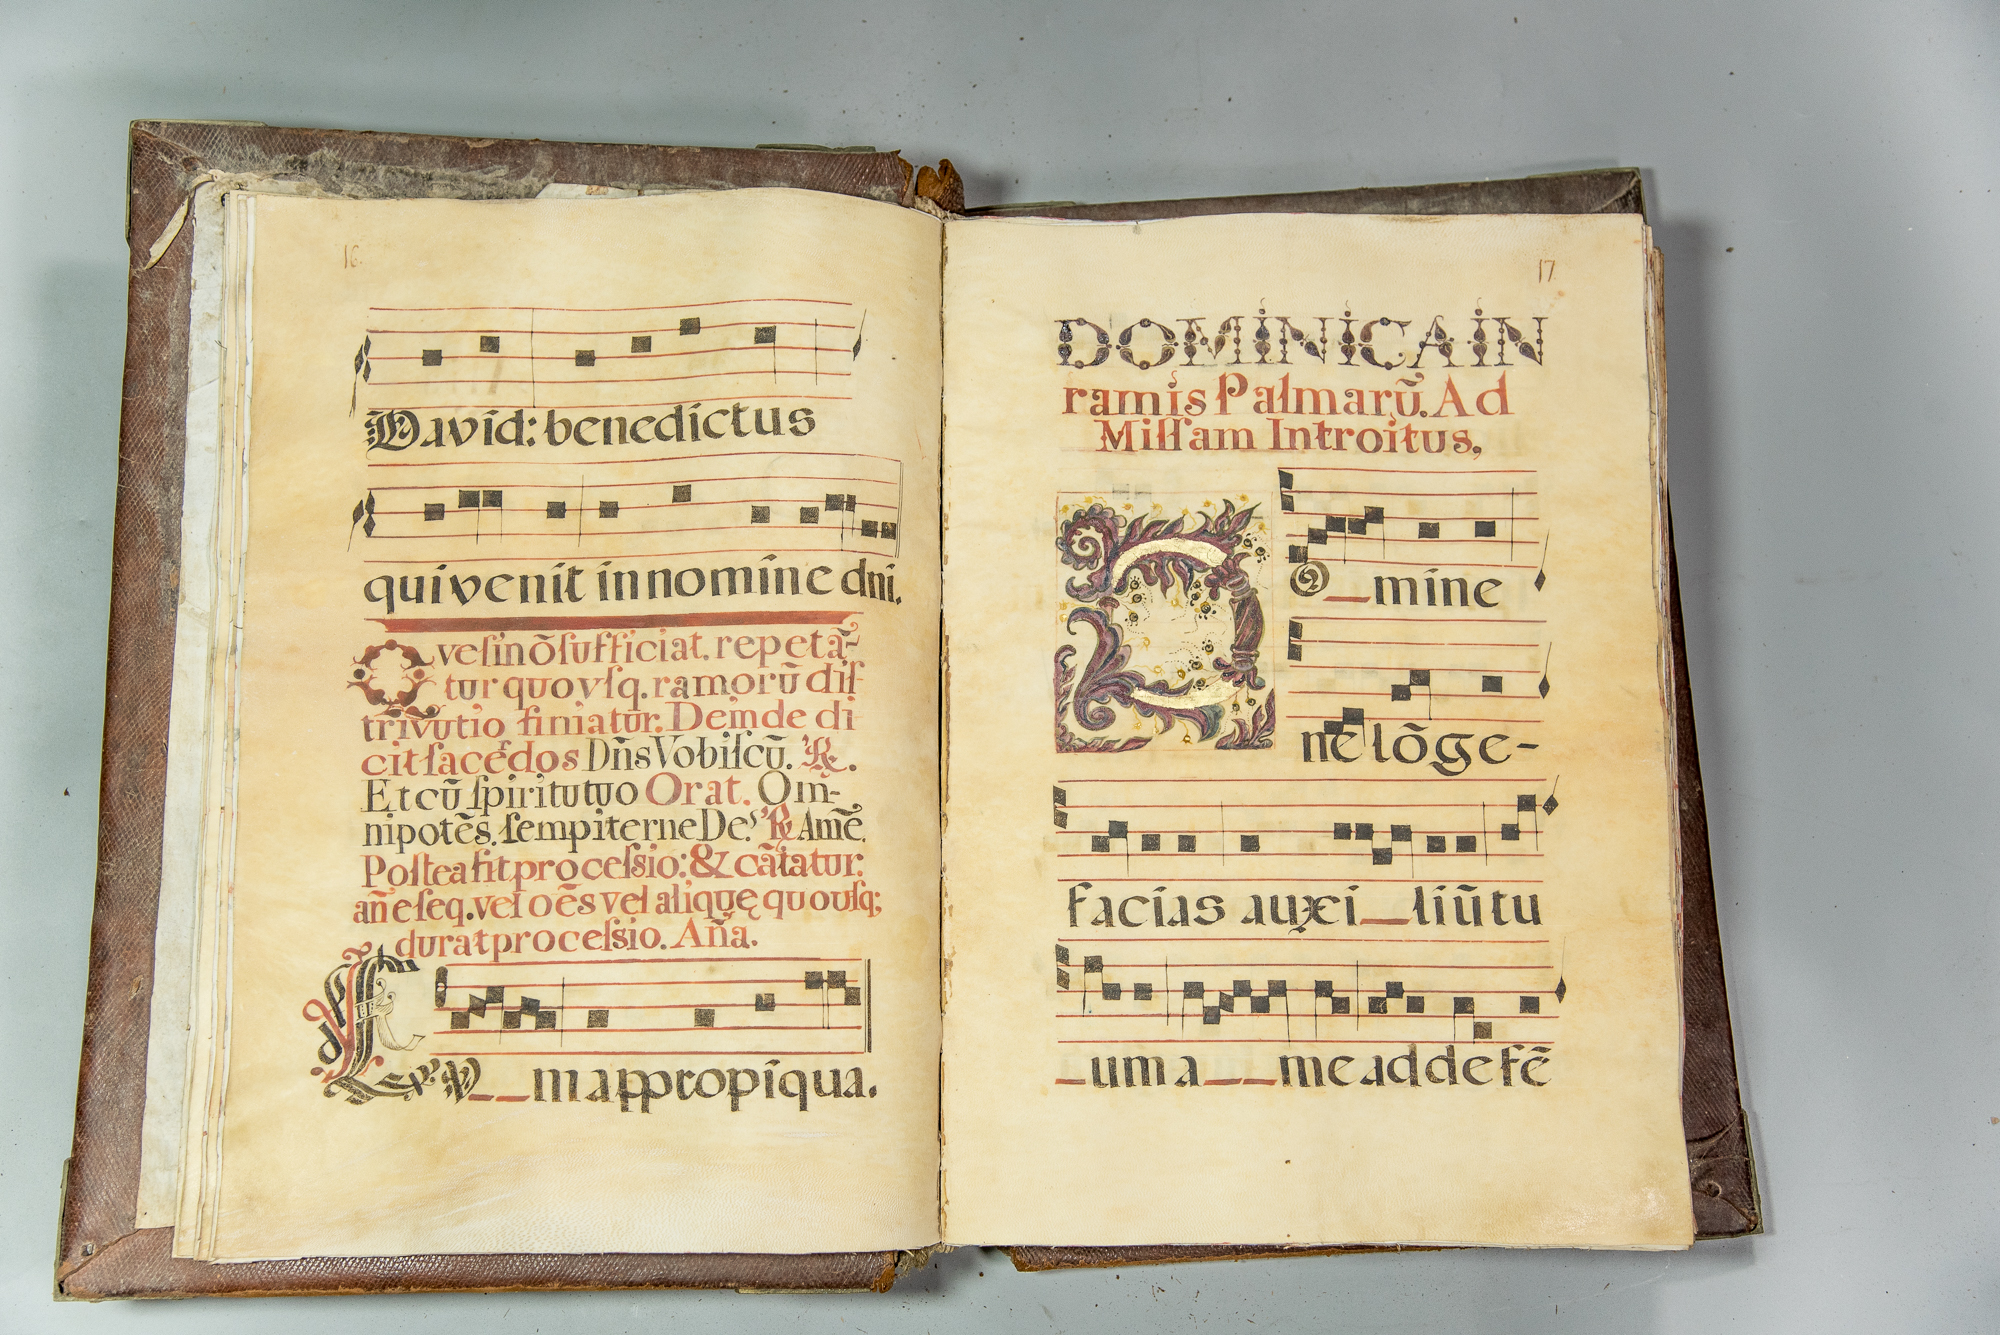 16
David: benedictus
qui venit in nomine dñi.
Q vesi nõ sufficiat. repetã-
tur quovsq. ramorũ dis
trivutio finiatur. Deinde di
cit sacẽdos Dñs Vobiscũ. ℟.
Et cũ spiritu tuo Orat. Om-
nipotẽs. sempiterne De⁹ ℟ Amẽ.
Postea fit processio: & cãtatur.
añe seq. vel oẽs vel aliquę quousq;
durat processio. Aña.
m appropiqua.
17
DOMINICA IN
ramis Palmarũ. Ad
Missam Introitus.
D O_mine
ne lõge-
facias auxi_liũ tu
_um a__me ad defẽ